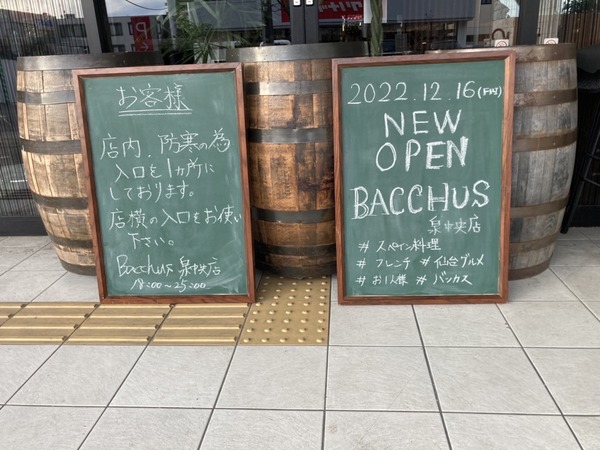 お客様
店内、防寒の為
入口を1ヵ所に
しております。
店横の入口をお使い
下さい。
Bacchus 泉中央店
18:00~25:00
2022.12.16(Fri)
NEW
OPEN
BACCHUS
泉中央店
# スペイン料理
# フレンチ # 仙台グルメ
# お1人様 # バッカス